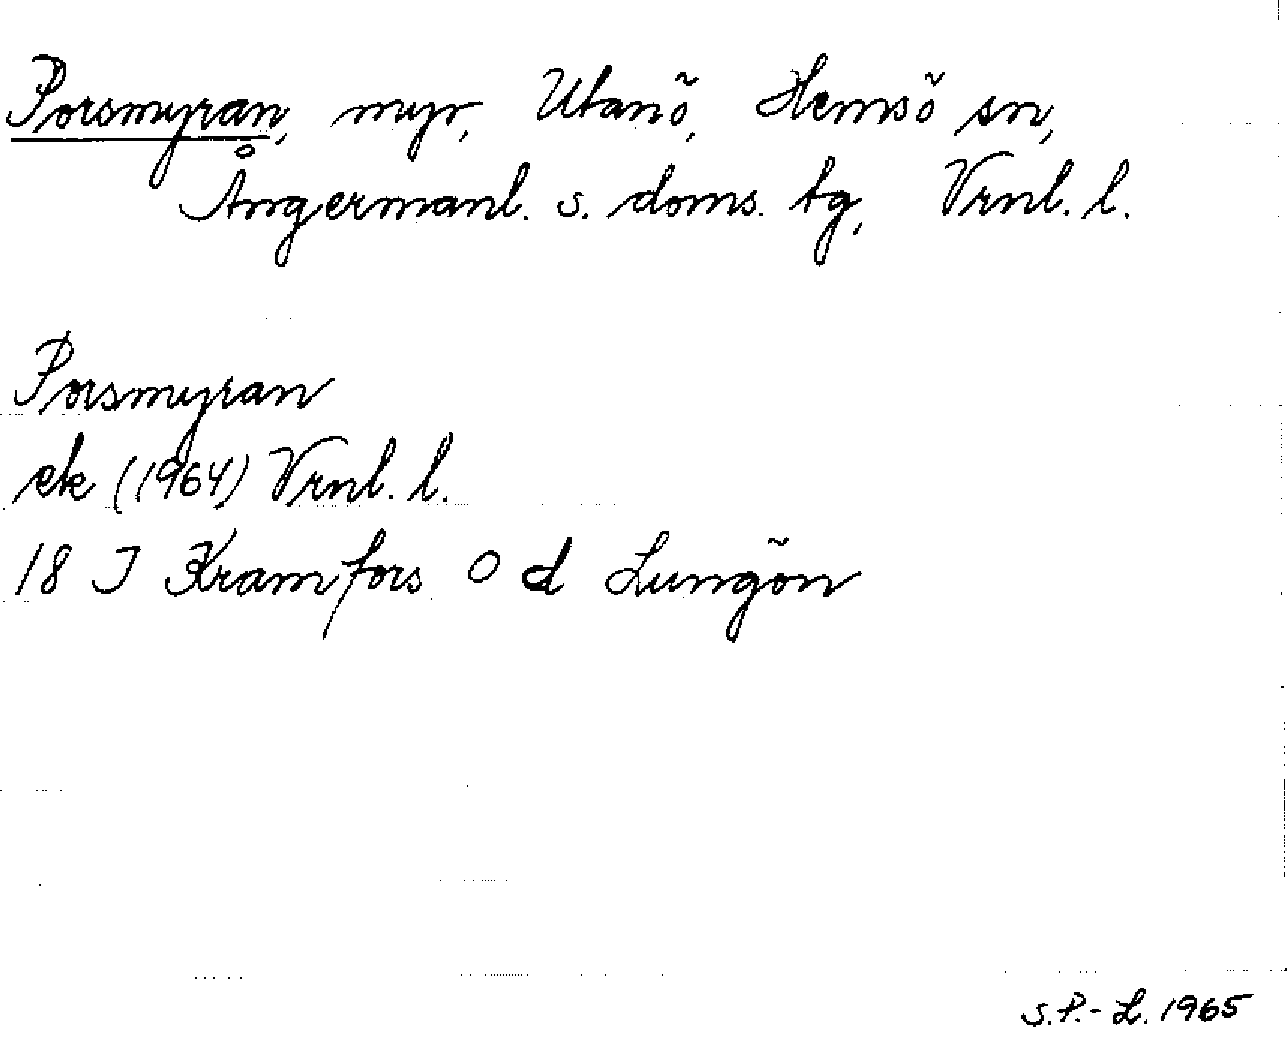 Porsmyran, myr, Utanö, Hemsö sn,
Ångermanl. s. doms. tg, Vrnl. l.
Porsmyran
ek (1964) Vrnl. l.
18 I Kramfors O d Lungön
S.P.-L. 1965